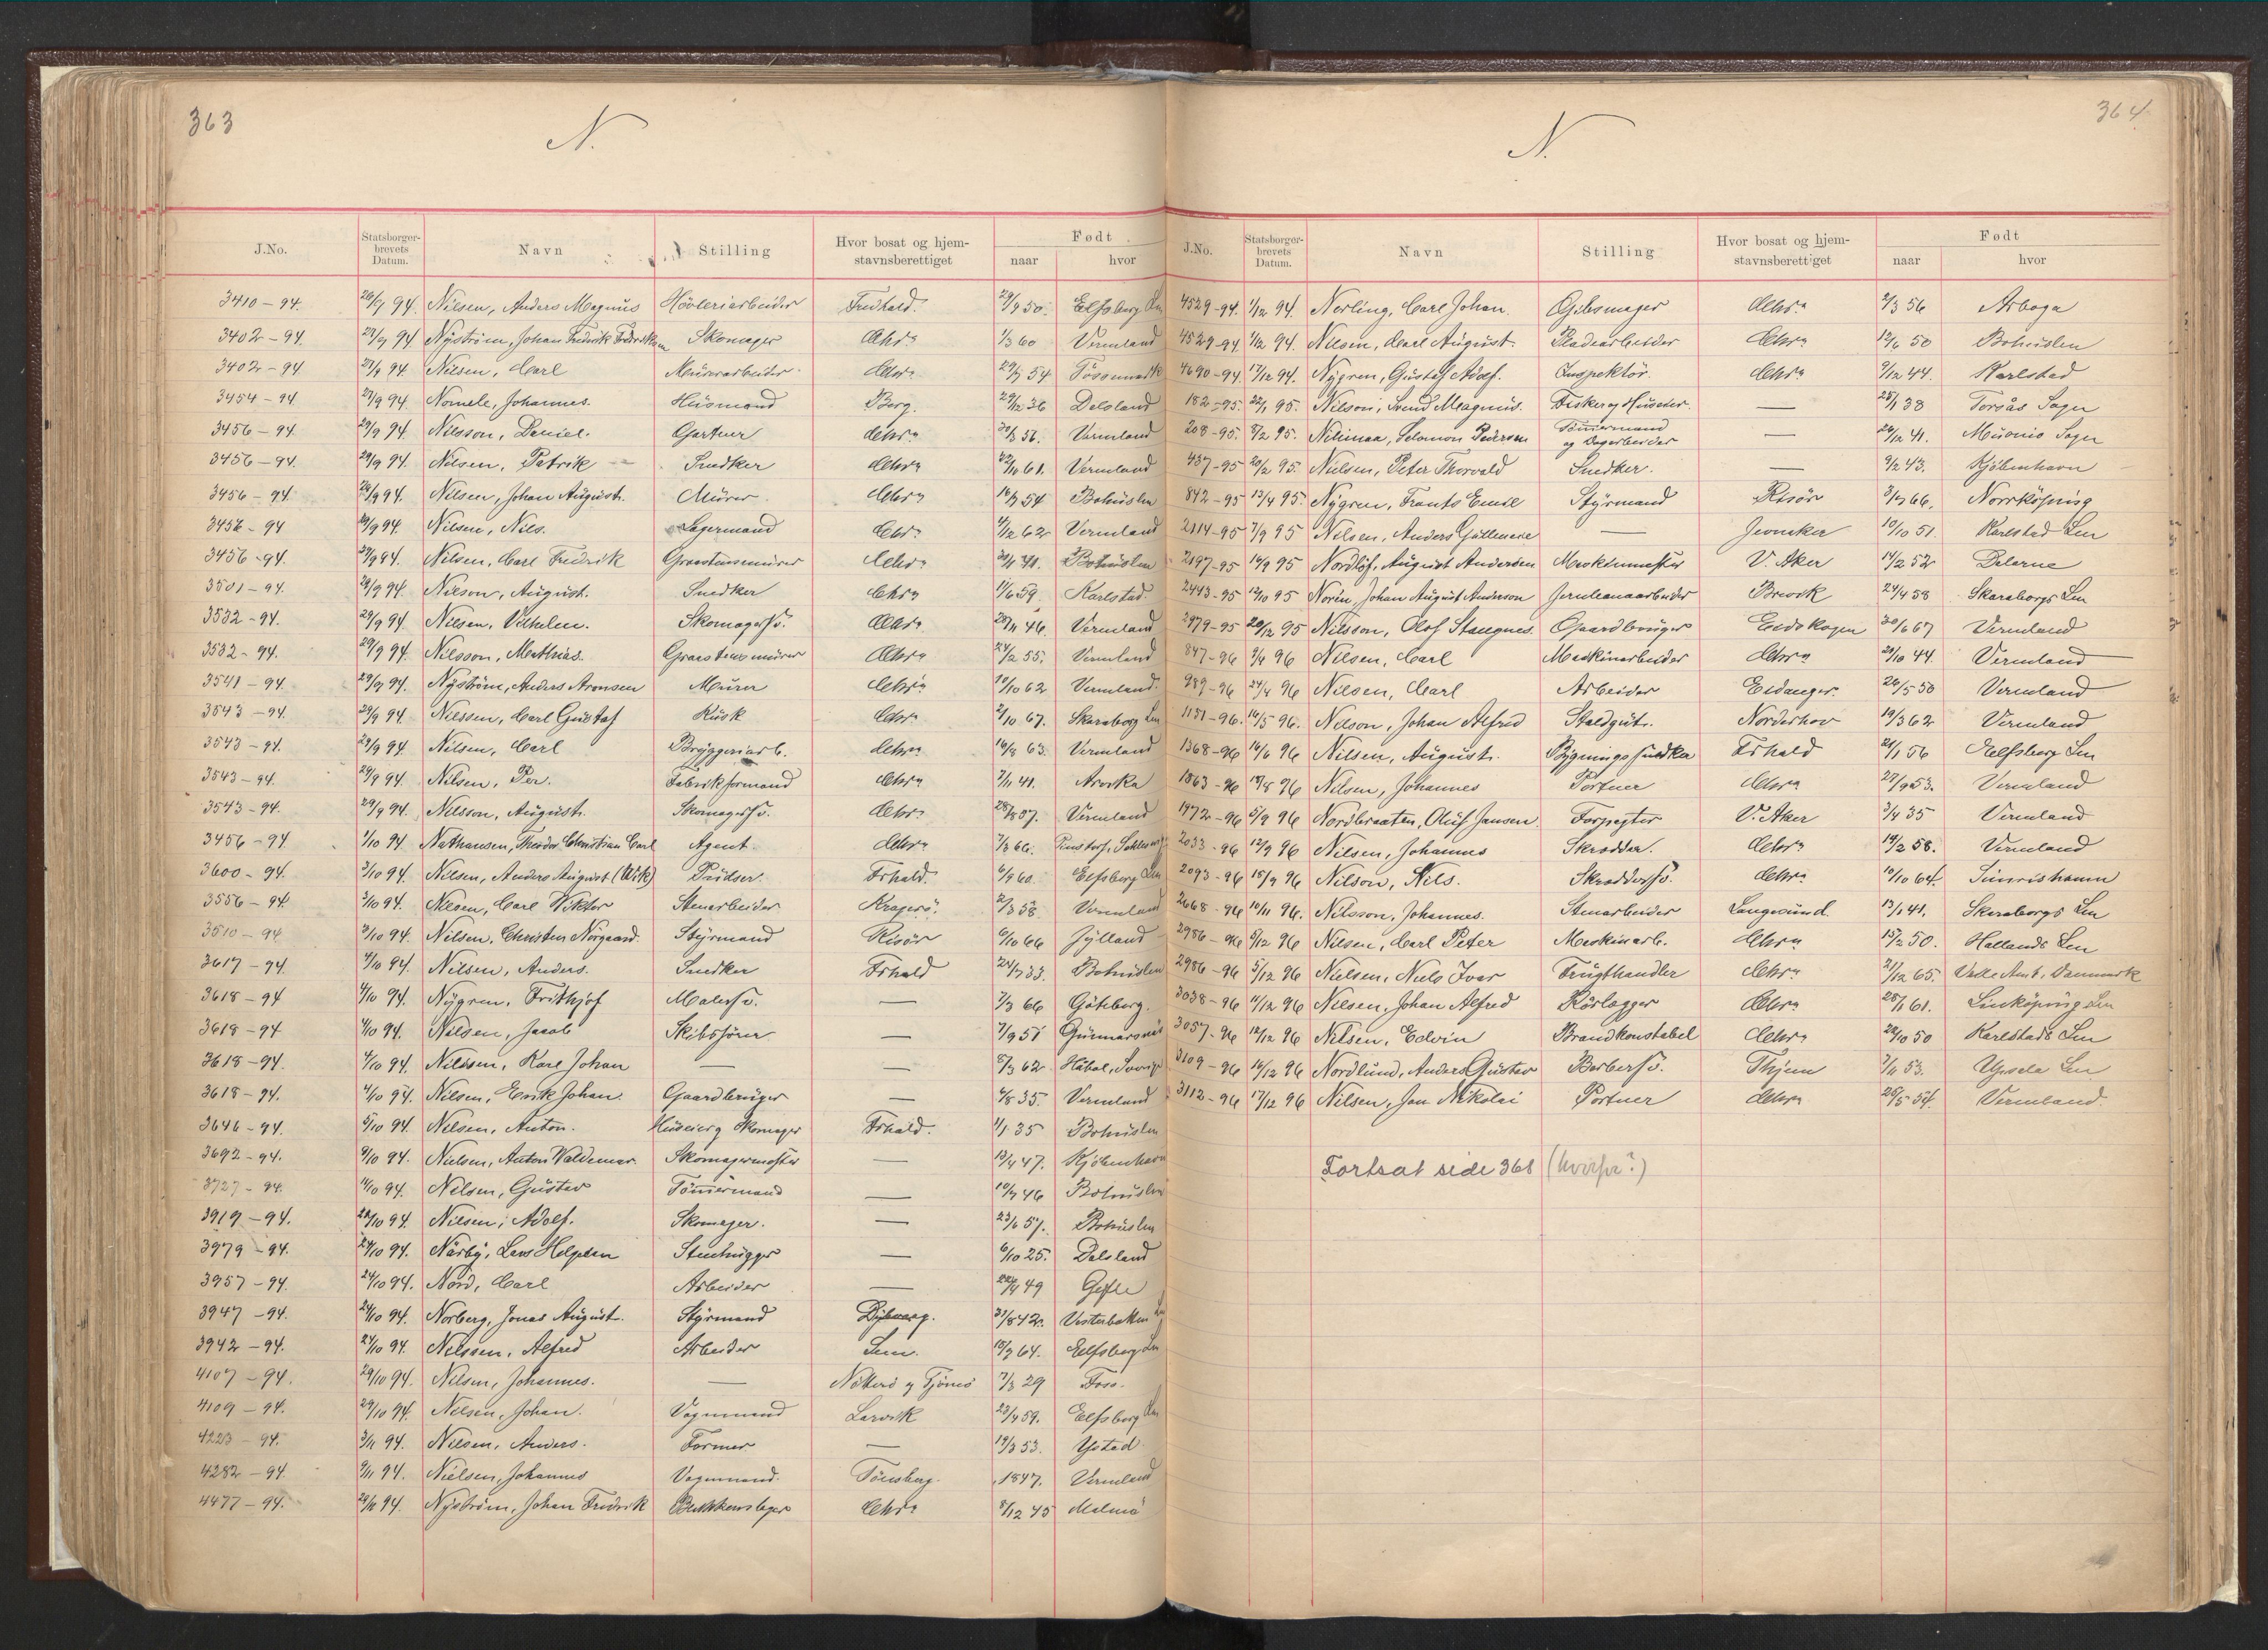 363
N.
J.No. Statsborgerbrevets Datum. Navn Stilling Hvor bosat og hjemstavnsberettiget Født naar hvor
3410 – 94. 26/9 94. Nilsen, Anders Magnus Høvleriarbeider Fredhald. 29/9 50. Elfsborg Len
3402 – 94. 27/9 94 Nyström, Johan Fredrik Fredriksen Skomager Chra 1/3 60 Vermland
3402 – 94 27/9 94. Nilsen, Carl Murerarbeider Chra 54 Tössemark
3454 – 94 27/9 94. Johannes. Husmand Berg. 29/12 36 Dalsland
3456 – 94. 29/9 94. Nilsson, Daniel. Gartner Chra 56. Vermland
3456 – 94. 29/9 94. Nilsen, Patrik Snedker Chra 61. Vermland
3456 – 94. 29/9 94. Nilsen, Johan August. Murer Chra 54 Bohuslen
3456 – 94 29/9 94. Nilsen, Nils. Lagermand Chra 4/12 62 Vermland
3456 – 94. 29/9 94. Nilsen, Carl Fredrik Graastensmurer Chra 41. Bohuslen
3501 – 94. 29/9 94. Nilson, August. Snedker Chra 11/6 59. Karlstad.
3532 – 94. 29/9 94. Nilsen, Vilhelm. Skomagersv. Chra 46. Vermland
3532 – 94. 29/9 94. Nilsson, Mathias. Graastensmurer Chra 24/2 55. Vermland
3541 – 94. 29/9 94. Nyström, Anders Aronsen Murer Chra 10/10 62 Vermland.
3543 – 94. 29/9 94. Nilssen, Carl Gustaf Kusk Chra 2/10 67. Skaraborg Len
3543 – 94. 29/9 94. Nilsen, Carl Bryggeriarb. Chra 16/8 63. Vermland
3543 – 94. 29/9 94. Nilsen, Per. Fabrikformand Chra 7/11 41. Arvika
3543 – 94. 29/9 94. Nilsson, August. Skomagersv. Chra 28/8 37. Vermland
3456 – 94 1/10 94. Nathansen, Theodor Christian Carl Agent. Chra 7/3 66.
3600 – 94. 3/10 94. Nilsen, Anders August (Wik) Pudser. Frhald. 6/9 60. Elfsborg Len
3556 – 94. 3/10 94. Nilsen, Carl Viktor Stenarbeider Kragerö. 2/3 58. Vermland
3510 – 94 3/10 94. Nilsen, Christen Nörgaard. Styrmand Risör 6/10 66 Jylland
3617 – 94. 4/10 94. Nilsen, Anders. Snedker Frhald 24/7 33. Bohuslen
3618 – 94 4/10 94. Nygren, Frithjof Malersv. — 7/3 66 Göteborg.
3618 – 94 4/10 94. Nilsen, Jacob Skibsfører — 7/9 51 Gunnarsnäs
3618 – 94. 4/10 94. Nilsson, Karl Johan — — 8/3 62. Håbol, Sverige
3618 – 94. 4/10 94. Nilsen, Erik Johan. Gaardbruger — 6/8 35. Vermland
3646 – 94. 5/10 94. Nilsen, Anton. Huseier og Skomager Frhald. 1/1 35 Bohuslen
3692 – 94. 9/10 94. Nielsen, Anton Waldemar. Skomagermester — 13/4 47. Kjöbenhavn
3727 – 94. 11/10 94. Nilsen, Gustav Tömmermand — 10/7 46 Bohuslen
3919 – 94. 22/10 94. Nilsen, Adolf. Skomager. — 23/6 57. Bohuslen
3979 – 94. 24/10 94. Närby, Lars Stenhugger — 6/10 25. Dalsland
3957 – 94. 24/10 94. Nord, Carl Arbeider — 49 Gefle
3947 – 94. 24/10 94. Norberg, Jonas August. Styrmand Dybvaag. 31/8 42. Vesterbotten Len
3942 – 94. 24/10 94. Nilssen, Alfred Arbeider Lier. 64. Elfsborg Len
4107 – 94. 29/10 94. Nilsen, Johannes. — Nötterö og Tjömö 7/3 29 Foss.
4109 – 94. 29/10 94. Nilsen, Johan. Vognmand Larvik 23/4 59. Elfsborg Len
4223 – 94. 3/11 94. Nilsen, Anders. Former — 19/3 53. Ystad
4282 – 94. 9/11 94. Nielsen, Johannes Vognmand. Tönsberg. 1847. Vermland
4477 – 94. 94. Nyström, Johan Fredrik Blikkenslager Chra 8/12 45 Malmö
364.
N.
J.No. Statsborgerbrevets Datum. Navn Stilling Hvor bosat og hjemstavnsberettiget Født naar hvor
4529 – 94. 1/12 94. Norling, Carl Johan. Gjibsmager Chra 2/3 56 Arboga
4529 – 94 1/12 94. Nilsen, Carl August. Pladearbeider Chra 12/6 50 Bohuslen
4690 – 94. 17/12 94. Nygren, Gustaf Adolf. Inspektör. Chra 9/12 44. Karlstad
182 – 95. 22/1 95. Nilsson, Svend Magnus. Fisker og Huseier. — 25/1 38 Torsås Sogn
208 – 95. 8/2 95. Salomon Pedersen Tömmermand og Dagarbeider — 24/12 41. Muonio Sogn
437 – 95 20/2 95. Nielsen, Peter Thorvald Snedker. — 9/2 43. Kjöbenhavn
842 – 95 13/4 95. Nygren, Frants Emil Styrmand Risör 3/7 66. Norrköping
2114 – 95 7/9 95 Nilsen, Anders Gullmar — Jevnaker 10/10 51. Karlstad Len
2197 – 95 14/9 95 Nordlöf, August Andersen Maskinmester V. Aker 14/2 52 Dalarne
2443 – 95 12/10 95 Norén, Johan August Anderson Jernbanearbeider Brevik 24/4 58 Skaraborgs Len
2979 – 95 20/12 95 Nilsson, Olof Stangnes. Gaardbruger Eidskogen 30/6 67 Vermland
847 – 96 9/4 96 Nilsen, Carl Maskinarbeider Chra 29/10 44. Vermland
989 – 96 24/4 96 Nilsen, Carl Arbeider Eidanger. 26/5 50 Vermland
1151 – 96. 14/5 96. Nilson, Johan Alfred Staldgut. Norderhov 19/3 62 Vermland
1368 – 96 16/6 96 Nilsen, August. Bygningssnedker Frhald 21/1 56 Elfsborg Len
1863 – 96 18/8 96 Nilsen, Johannes Portner Chra 27/9 53. Vermland
1972 – 96 5/9 96 Nordbraaten, Oluf Jansen. Forpagter V. Aker 3/4 35 Vermland
2033 – 96 12/9 96 Nilsen, Johannes Skrædder. Chra 14/2 58. Vermland
2093 – 96 15/9 96 Nilson, Nils. Skræddersv. Chra 10/10 64. Simrishamn
2668 – 96 10/11 96. Nilsson, Johannes. Stenarbeider Langesund. 13/1 41. Skaraborgs Len
2986 – 96 5/12 96 Nilsen, Carl Peter Maskinarb. Chra 15/2 50. Hallands Len
2986 – 96 5/12 96 Nielsen, Niels Ivar Frugthandler Chra 21/12 65. Veile Amt, Danmark
3038 – 96 11/12 96 Nilsen, Johan Alfred Rörlægger Chra 28/1 61. Linköping Len
3057 – 96 12/12 96 Nilsen, Edvin Brandkonstabel Chra 22/10 50 Karlstads Len
3109 – 96 16/12 96 Nordlund, Anders Gustav Barbersv. Thjem 7/11 53. Upsala Len
3112 – 96 17/12 96 Nilsen, Jan Nikolai Portner Chra 26/5 54. Vermland.
Fortsat side 368 (hvorfor?)